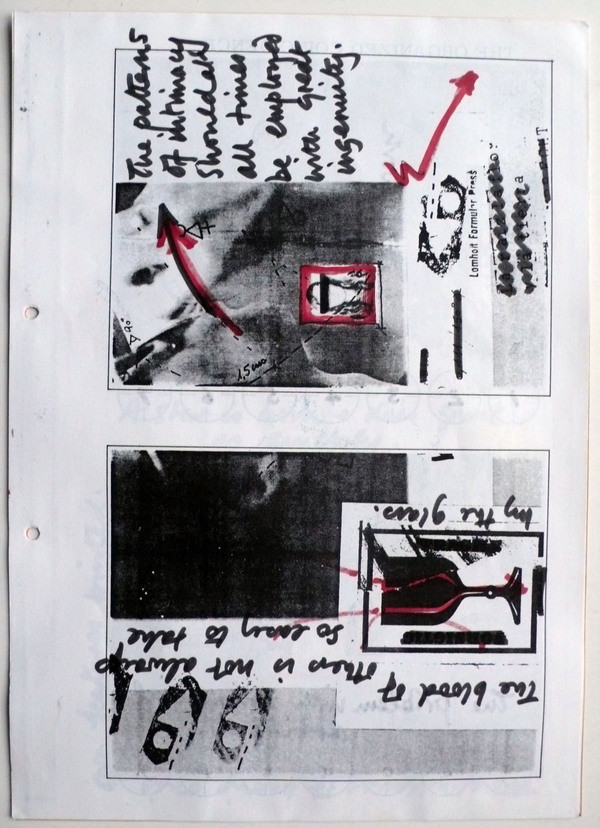 The patterns
of intimacy
should at
all times
be employed
with great
ingenuity.
Lomholt Formular Press
1,5 cm
The blood of
others is not always
so easy to take
by the glass.